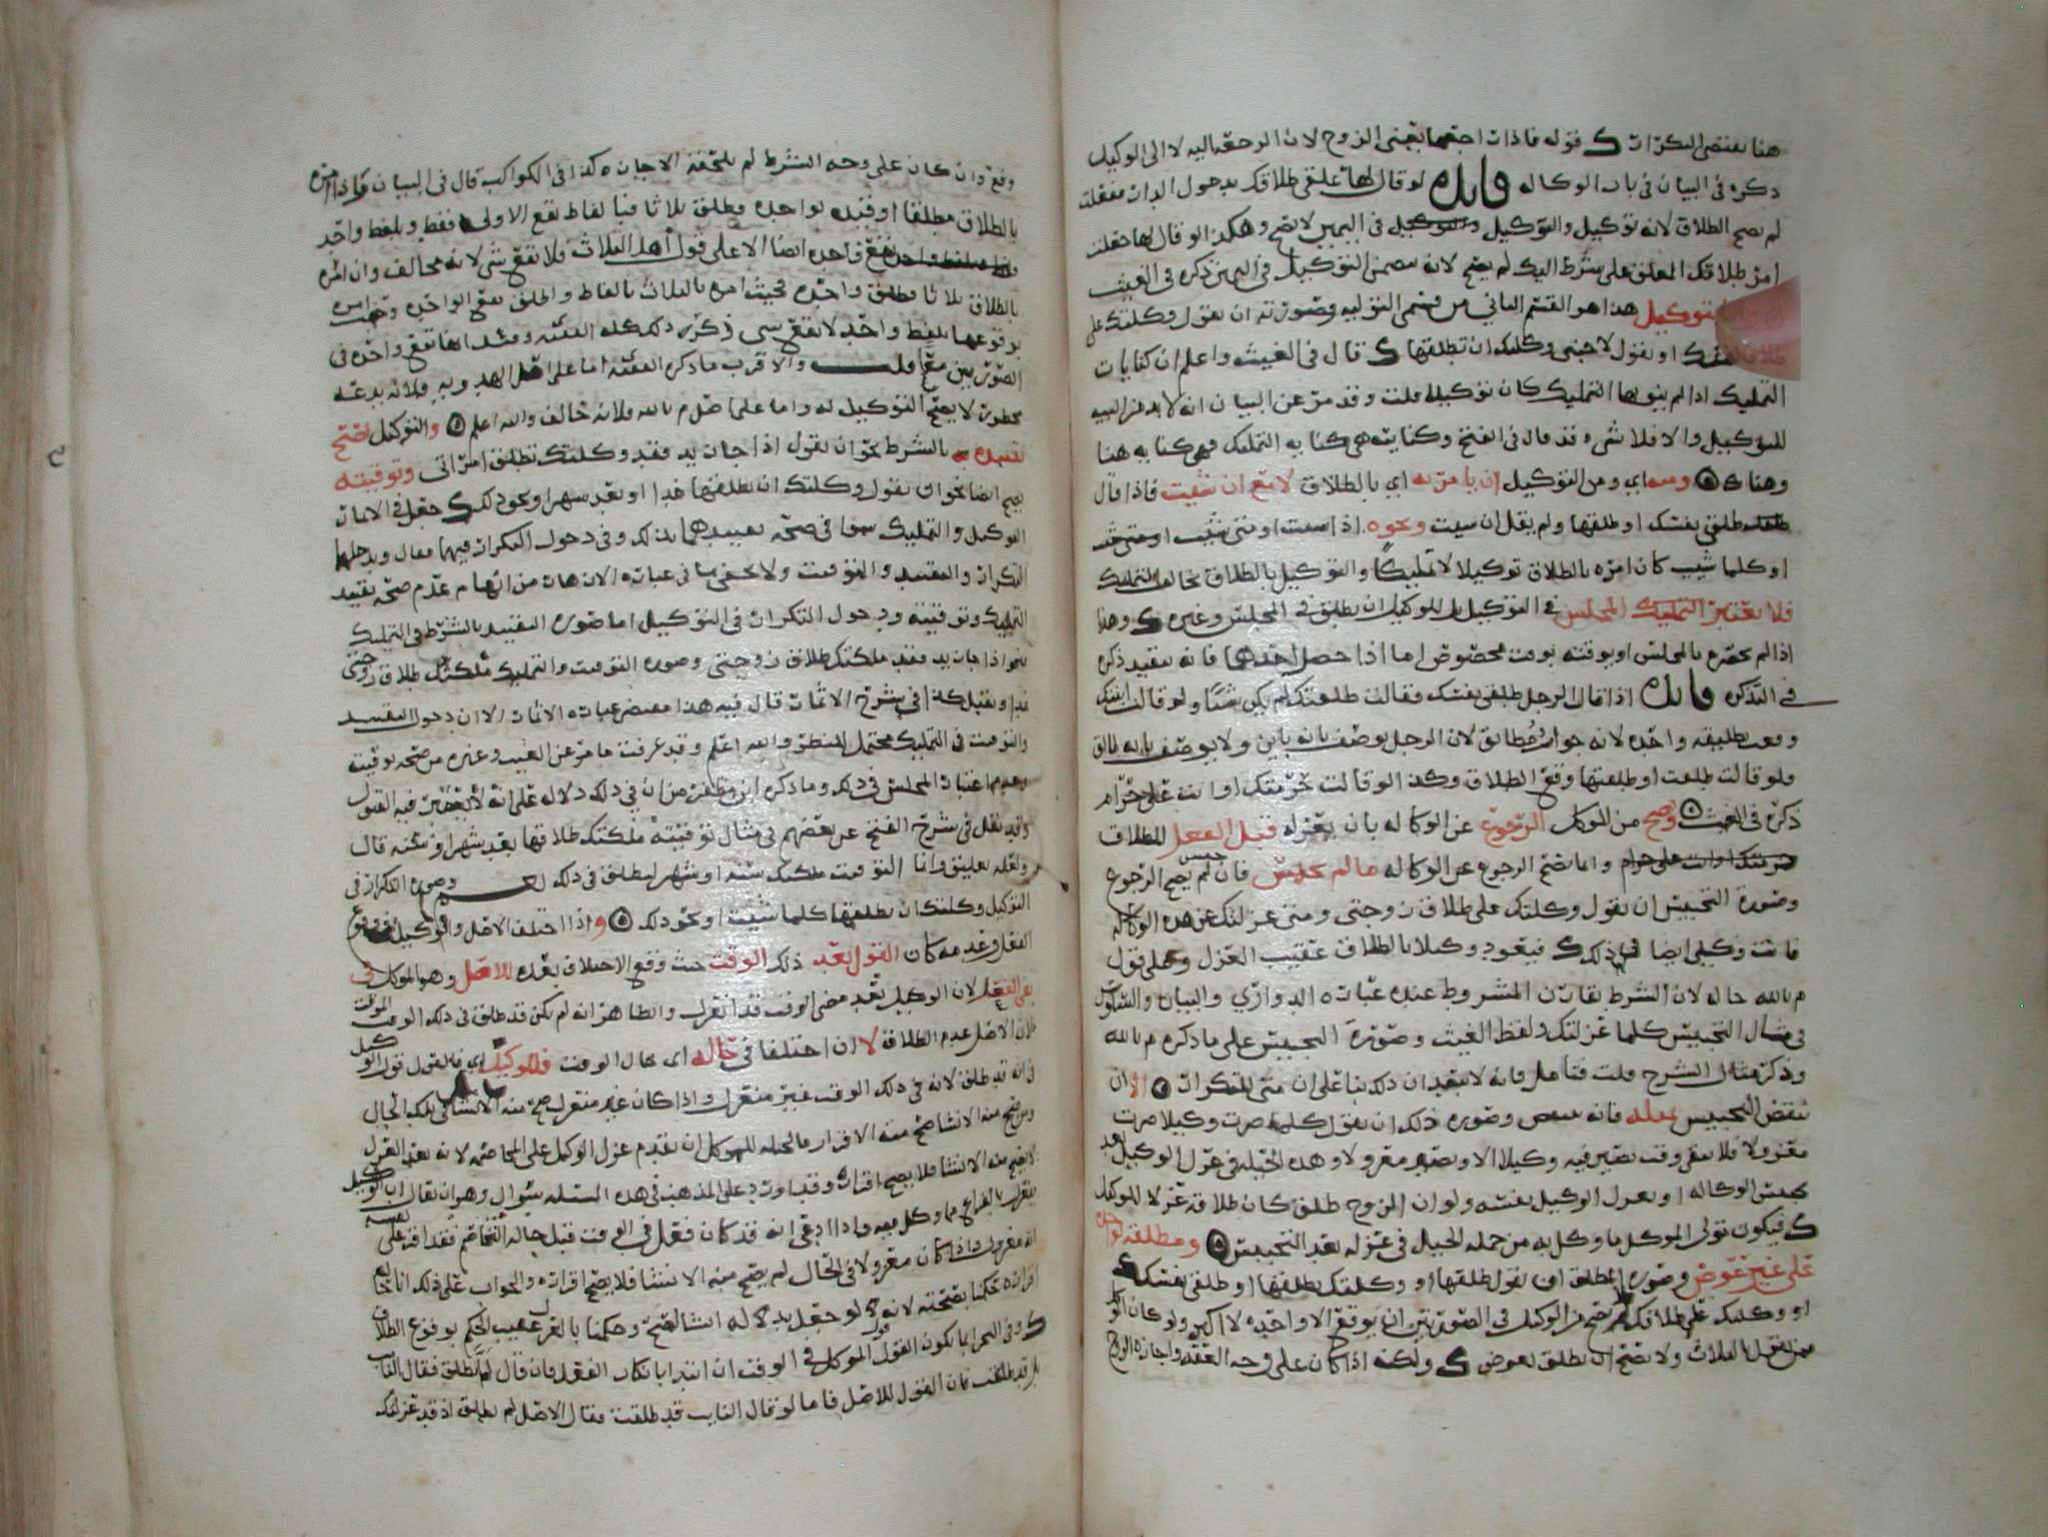 هنا يقتضي التكرار ك قوله فاذا راجعها يعني الزوج لان الرجعه اليه لا الى الوكيل
ذكره في البيان في باب الوكاله فايده لو قال لها علقي طلاقك بدخول الدار ففعلت
لم يصح الطلاق لانه توكيل والتوكيل في اليمين لا يصح وهكذا لو قال لها جعلت
امر طلاقك المعلق على شرط اليك لم يصح لانه تضمن التوكيل في اليمين ذكره في الغيث
توكيل هذا هو القسم الثاني من قسمي التوليه وصورته ان يقول وكلتك على
طلاق نفسك او يقول لاجنبي وكلتك ان تطلقها ك قال في الغيث واعلم ان كنايات
التمليك اذا لم ينو بها التمليك كان توكيلا قلت وقد مر عن البيان انه لا بد من النيه
للتوكيل والا فلا شيء قد قال في الفتح وكنايته هي كنايه التمليك فهي كنايه هنا
وهناك ومنه اي ومن التوكيل ان يامر به اي بالطلاق لا مع ان شئت فاذا قال
طلقي نفسك او طلقها ولم يقل ان شئت ونحوه اذا شئت او متى شئت
او كلما شئت كان امره بالطلاق توكيلا لا تمليكا والتوكيل بالطلاق يخالف التمليك
فلا يعتبر المجلس في التوكيل بل للوكيل ان يطلق في المجلس وغيره ك وهذا
اذا لم يحصره بالمجلس او يوقته بوقت مخصوص اما اذا حصل احدهما فانه يتقيد ذكره
في التذكره فايده اذا قال الرجل طلقي نفسك فقالت طلقتك لم يكن شيئا ولو قالت ابنتك
وقعت تطليقه واحده لانه جواب مطابق لان الرجل يوصف بانه باين ولا يوصف بانه طالق
ولو قالت طلقت او طلقتها وقع الطلاق وكذا لو قالت حرمتك او انت علي حرام
ذكره في الغيث ويصح من الموكل الرجوع عن الوكاله بان يعزله قبل الفعل للطلاق
وانما يصح الرجوع عن الوكاله ما لم يحبس فان حبس لم يصح الرجوع
وصورة التحبيس ان يقول وكلتك على طلاق زوجتي ومتى عزلتك عن هذه الوكاله
فانت وكيلي ايضا في ذلك ك فيعود وكيلا بالطلاق عقيب العزل وعلى قول
م بالله حاله لان الشرط يقارن المشروط عنده عبارة الدواري والبيان والسلوك
في مثال التحبيس كلما عزلتك ولفظ الغيث وصورة التحبيس على ما ذكره م بالله
وذكر مثال الشرح قلت فتامل فانه لا يبعد ان ذلك بنا على ان متى للتكرار الا ان
ينقض التحبيس بمثله فانه ينتقض وصورة ذلك ان يقول كلما صرت وكيلا صرت
معزولا فلا يبقى وقت يصير فيه وكيلا الا ويصير معزولا وهذه الحيله في عزل الوكيل بعد
تحبيس الوكاله او يعزل الوكيل نفسه ولو ان الزوج طلق كان طلاقه عزلا للوكيل
ك فيكون تولي الموكل ما وكل به من جمله الحيل في عزله بعد التحبيس ومطلقه لواحده
على غير عوض وصورة المطلق ان يقول طلقها او وكلتك بطلقها او طلقي نفسك
او وكلتك على طلاقك لم يصح من الوكيل في الصورتين ان يوقع الا واحده لا اكثر ولو كان الوكيل
ممن يقول بالثلاث ولا يصح ان يطلق بعوض ك ولكنه اذا كان على وجه العقد واجازه الزوج
وقع وان كان على وجه الشرط لم تلحقه الاجازه كذا في الكواكب قال في البيان فاذا امره
بالطلاق مطلقا او قيده بواحده فطلق ثلاثا فبالفاظ تقع الاولى فقط وبلفظ واحد
تقع واحده ايضا الا على قول اهل الثلاث فلا يقع شي لانه مخالف وان امره
بالطلاق ثلاثا فطلق واحده فحيث امره بالثلاث بالفاظ واطلق تقع الواحده وحيث امره
بوقوعها بلفظ واحد لا يقع شي ذكر ذلك كله الفقيه
الصورتين معا قلت والاقرب ما ذكره الفقيه اما على اصل الهدويه فلانه بدعه
محظور لا يصح التوكيل له واما على اصل م بالله فلانه خالف والله اعلم والتوكيل يصح
تقييده بالشرط نحو ان يقول اذا جا زيد فقد وكلتك تطلق امراتي وتوقيته
يصح ايضا نحو ان يقول وكلتك ان تطلقها غدا او بعد شهر او نحو ذلك ك جعل في الاثمار
التوكيل والتمليك سوا في صحة تقييدهما بذلك وفي دخول التكرار فيهما فقال ويدخلهما
التكرار والتقييد والتوقيت ولا يخفى ما في عبارة الازهار من ايهام عدم صحة تقييد
التمليك وتوقيته ودخول التكرار في التوكيل اما صورة التقييد بالشرط في التمليك
نحو اذا جا زيد فقد ملكتك طلاق زوجتي وصورة التوقيت والتمليك ملكتك طلاق زوجتي
غدا وتقبله في شرح الاثمار قال فيه هذا مقتضى عبارة الاثمار الا ان دخول التقييد
والتوقيت في التمليك محتمل للنظر والله اعلم وقد عرفت ما مر عن الغيث وغيره من صحة توقيته
وعدم اعتبار المجلس في ذلك وما ذكره ابن مظفر من ان في ذلك دلاله على انه لا يعتبر فيه القبول
وقد نقل في شرح الفتح عن بعضهم في مثال توقيته ملكتك طلاقها بعد شهر او سنه قال
ولعله تعليق وانما التوقيت ملكتك سنه او شهر لتطلق في ذلك وصورة التكرار في
التوكيل وكلتك ان تطلقها كلما شئت او نحو ذلك واذا اختلف الاصل والوكيل في وقوع
الفعل وعدمه كان القول بعد ذلك الوقت حيث وقع الاختلاف بعده للاصل وهو الموكل في
نفي الفعل لان الوكيل بعد مضي الوقت قد انعزل والظاهر انه لم يكن قد طلق في ذلك الوقت الموقت
لان الاصل عدم الطلاق لا ان اختلفا في حاله اي حال الوقت فللوكيل اي فالقول قول الوكيل
في انه قد طلق لانه في ذلك الوقت غير منعزل واذا كان غير منعزل صح منه الانشا في تلك الحال
ومن صح منه الانشا صح منه الاقرار فالحيله للموكل ان يقدم عزل الوكيل على المخاصمه لانه بعد العزل
لا يصح منه الانشا فلا يصح اقراره وقد اورد على المذهب في هذه المسئله سؤال وهو ان يقال ان الوكيل
ينعزل بالفراغ مما وكل فيه واذا ادعى انه قد كان فعل في الوقت قبل حاله التخاصم فقد اقر على نفسه
انه معزول واذا كان معزولا في الحال لم يصح منه الانشا فلا يصح اقراره والجواب على ذلك انا
اقراره حكمنا بصحته لانه لو جعل بدلا له انشا لصح وحكمنا بالعزل عقيب الحكم بوقوع الطلاق
ك وفي البحر انما يكون القول قول الموكل في الوقت ان ابتدا بانكار الفعل فان قال لم تطلق فقال النايب
بل قد طلقت فان القول للاصل فاما لو قال النايب قد طلقت فقال الاصل لم تطلق اذ قد عزلتك